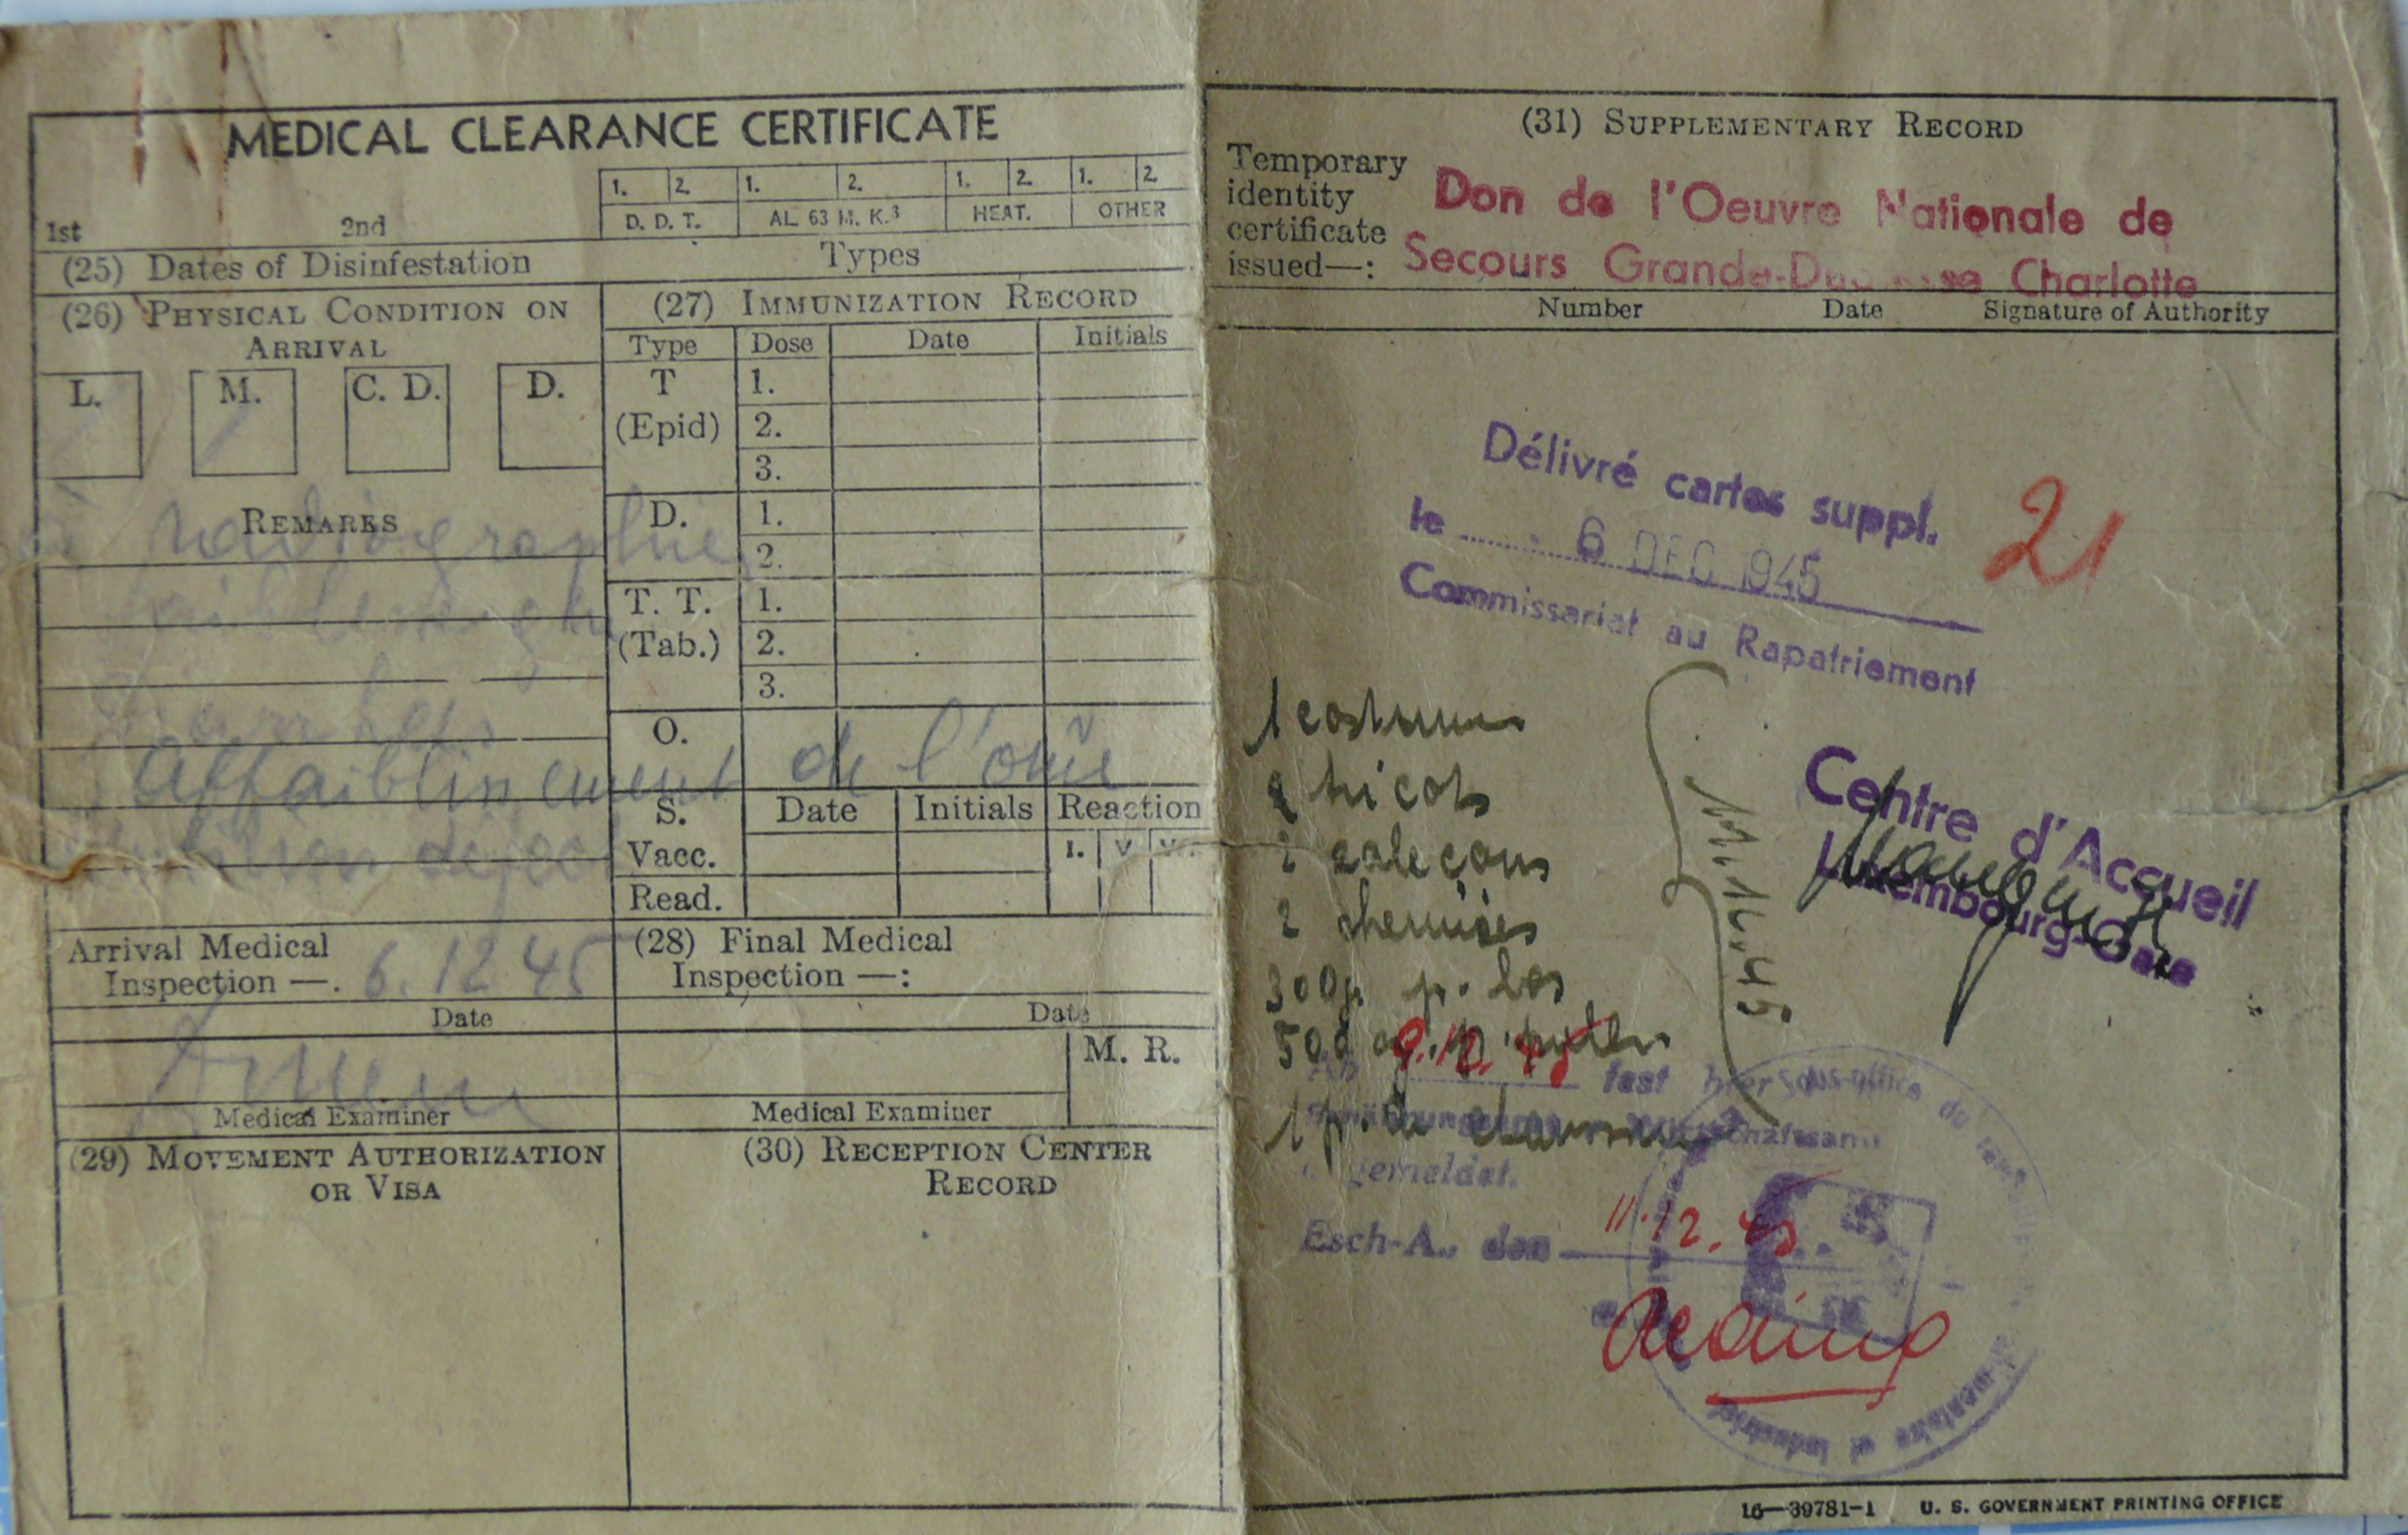 MEDICAL CLEARANCE CERTIFICATE
1. 2. 1. 2. 1. 2. 1. 2.
1st 2nd D. D. T. AL 63 M. K.3 HEAT. OTHER
(25) Dates of Disinfestation Types
(26) PHYSICAL CONDITION ON
ARRIVAL
L. M. C. D. D.
REMARKS
à radiographie
Affaiblissement de l'ouïe
Arrival Medical
Inspection —. 6.12 45
Date
Medical Examiner
(27) IMMUNIZATION RECORD
Type Dose Date Initials
T 1.
(Epid) 2.
3.
D. 1.
2.
T. T. 1.
(Tab.) 2.
3.
O.
S. Date Initials Reaction
Vacc. I. V
Read.
(28) Final Medical
Inspection —:
Date
M. R.
Medical Examiner
(29) MOVEMENT AUTHORIZATION
OR VISA
(30) RECEPTION CENTER
RECORD
(31) SUPPLEMENTARY RECORD
Temporary
identity
certificate
issued—:
Don de l'Oeuvre Nationale de
Secours Grande-Duchesse Charlotte
Number Date Signature of Authority
Délivré cartes suppl.
le - 6 DEC 1945
Commissariat au Rapatriement
21
1 costume
2 tricots
2 caleçons
2 chemises
300g p. bas
500 g.
1 p. de
11.12.45
Centre d'Accueil
Luxembourg-Gare
9.12.45 fest hier
gemeldet.
Esch-A., den 11.12.45
16—39781-1 U. S. GOVERNMENT PRINTING OFFICE